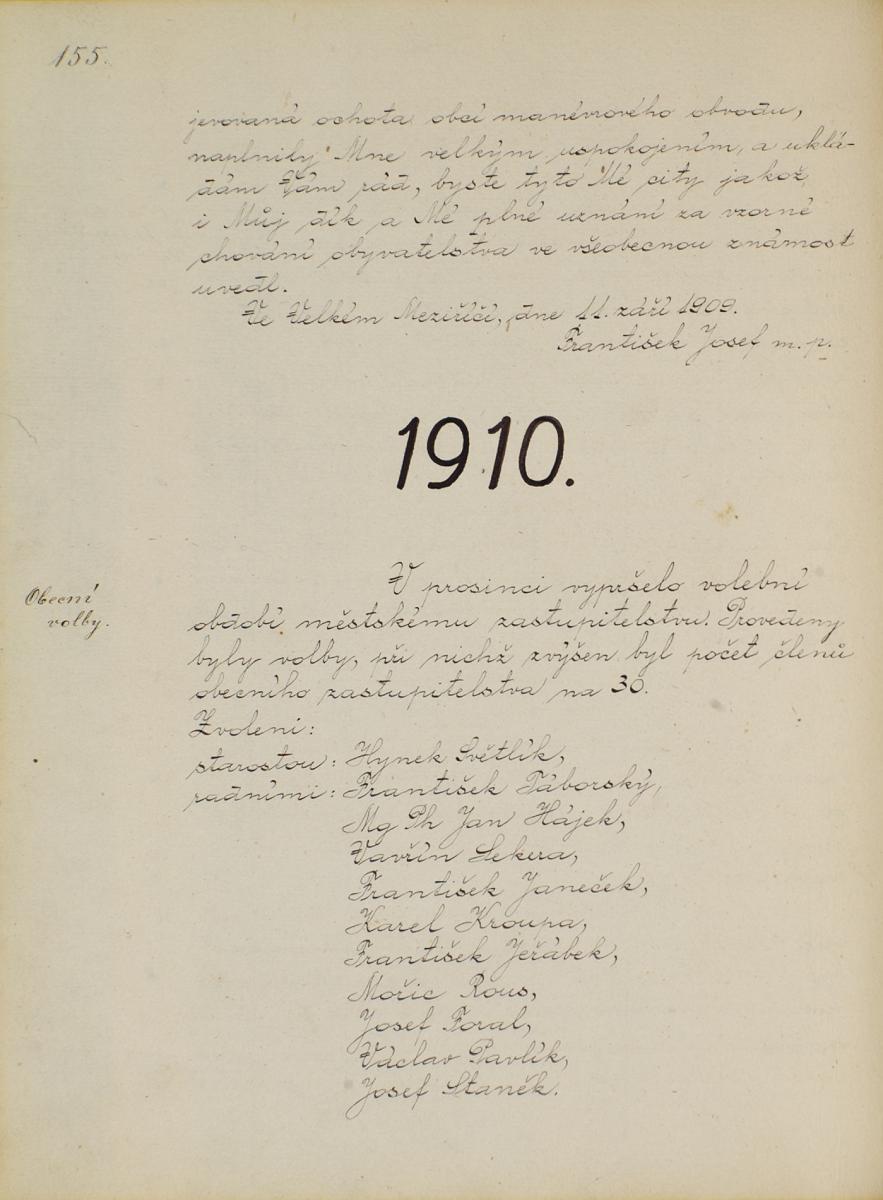 155.
jevovaná ochota obcí manévrového obvodu,
naplnily Mne velkým uspokojením, a uklá-
dám Vám rád, byste tyto Mé city jakož
i Můj dík a Mé plné uznání za vzorné
chování obyvatelstva ve všeobecnou známost
uvedl.
Ve Velkém Meziříčí, dne 11. září 1909.
František Josef m. p.
1910.
Obecní
volby.
V prosinci vypršelo volební
období městskému zastupitelstvu. Provedeny
byly volby, při nichž zvýšen byl počet členů
obecního zastupitelstva na 30.
Zvoleni:
starostou: Hynek Světlík,
radními: František Táborský,
Mg Ph Jan Hájek,
Vavřín Sekera,
František Janeček,
Karel Kroupa,
František Jeřábek,
Mořic Rous,
Josef Foral,
Václav Pavlík,
Josef Staněk.